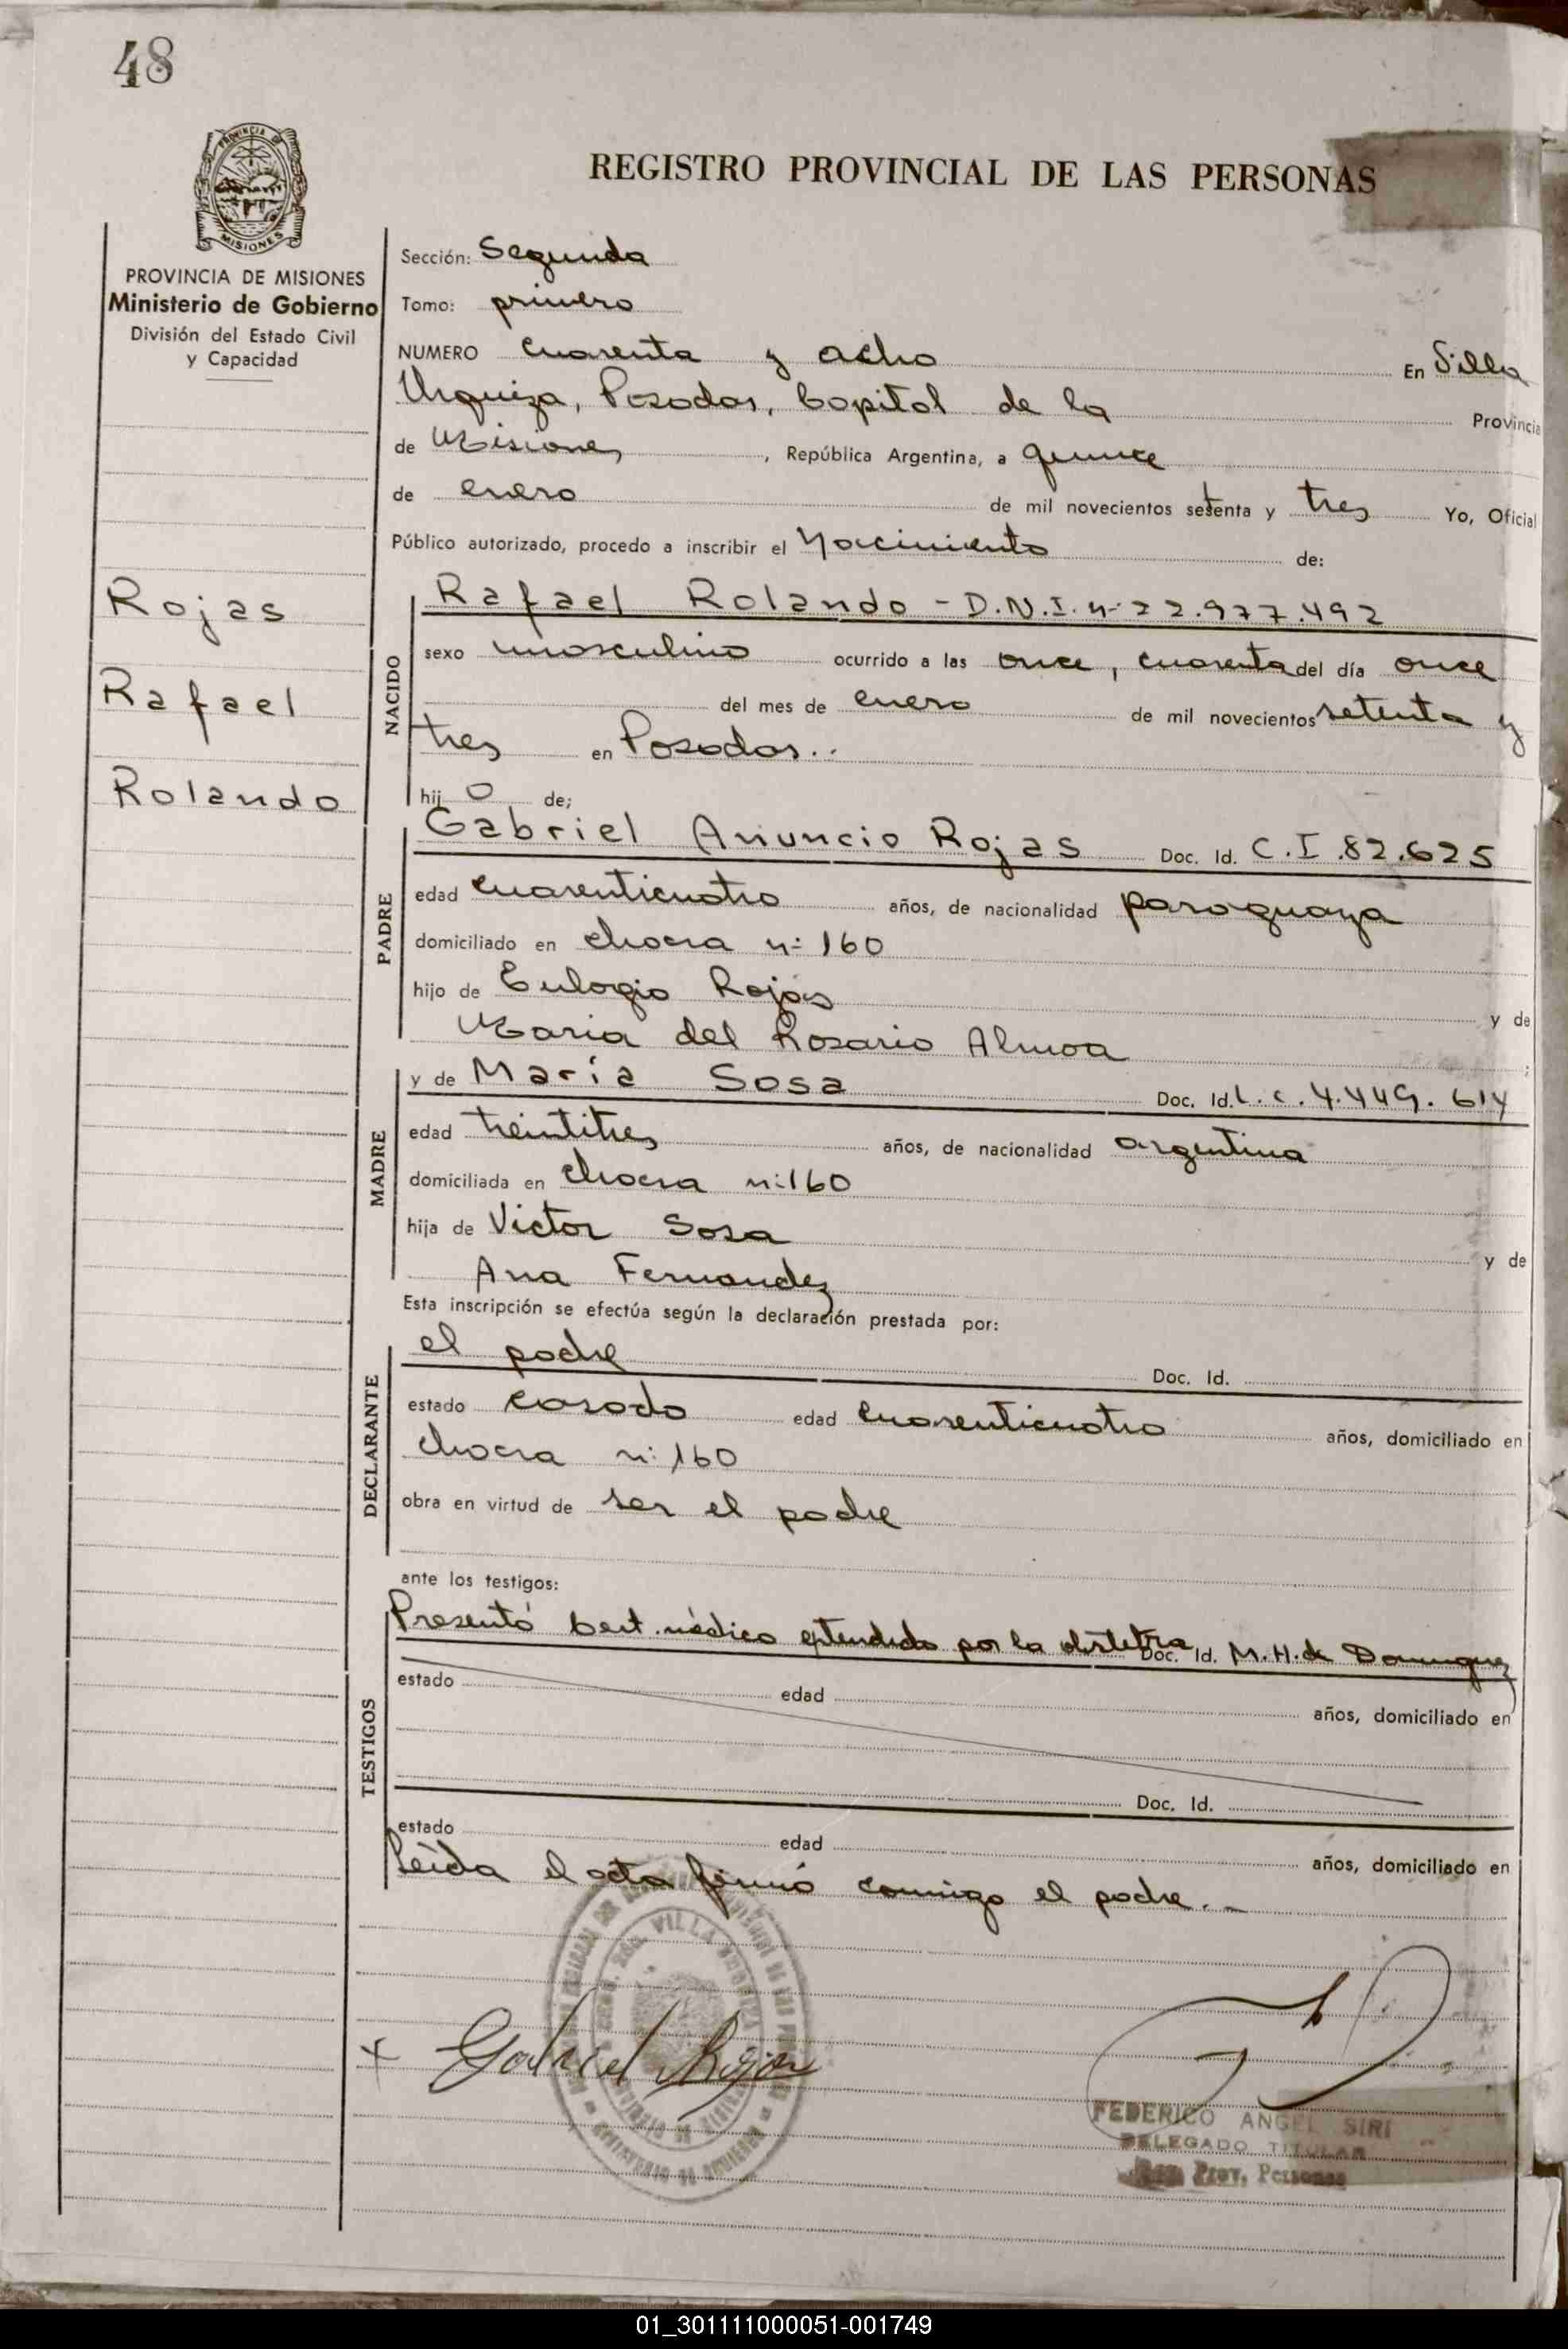 48
PROVINCIA DE
MISIONES
REGISTRO PROVINCIAL DE LAS PERSONAS
PROVINCIA DE MISIONES
Ministerio de Gobierno
División del Estado Civil
y Capacidad
Rojas
Rafael
Rolando
Sección: Segunda
Tomo: primero
NUMERO cuarenta y ocho En Villa
Urquiza, Posadas, Capital de la Provincia
de Misiones, República Argentina, a quince
de enero de mil novecientos setenta y tres Yo, Oficial
Público autorizado, procedo a inscribir el Nacimiento de:
NACIDO
Rafael Rolando - D.N.I. n: 22.977.492
sexo masculino ocurrido a las once, cuarenta del día once
del mes de enero de mil novecientos setenta y
tres en Posadas..
hij o de;
PADRE
Gabriel Anuncio Rojas Doc. Id. C.I.82.625
edad cuarenticuatro años, de nacionalidad paraguaya
domiciliado en chacra n: 160
hijo de Eulogio Rojas y de
Maria del Rosario Almoa ;
MADRE
y de María Sosa Doc. Id. L.c. 4.449.614
edad treintitres años, de nacionalidad argentina
domiciliada en chacra n:160
hija de Victor Sosa y de
Ana Fernandez
Esta inscripción se efectúa según la declaración prestada por:
DECLARANTE
el padre Doc. Id.
estado casado edad cuarenticuatro años, domiciliado en
chacra n: 160
obra en virtud de ser el padre
ante los testigos:
TESTIGOS
Presentó Cert. médico extendido por la obstetra Doc. Id. M.H. de Dominguez
estado edad años, domiciliado en
Doc. Id.
estado edad años, domiciliado en
Leída el acta firmó conmigo el padre.-
VILLA URQUIZA
x Gabriel Rojas
FEDERICO ANGEL SIRI
DELEGADO TITULAR
Reg. Prov. Personas
01_301111000051-001749